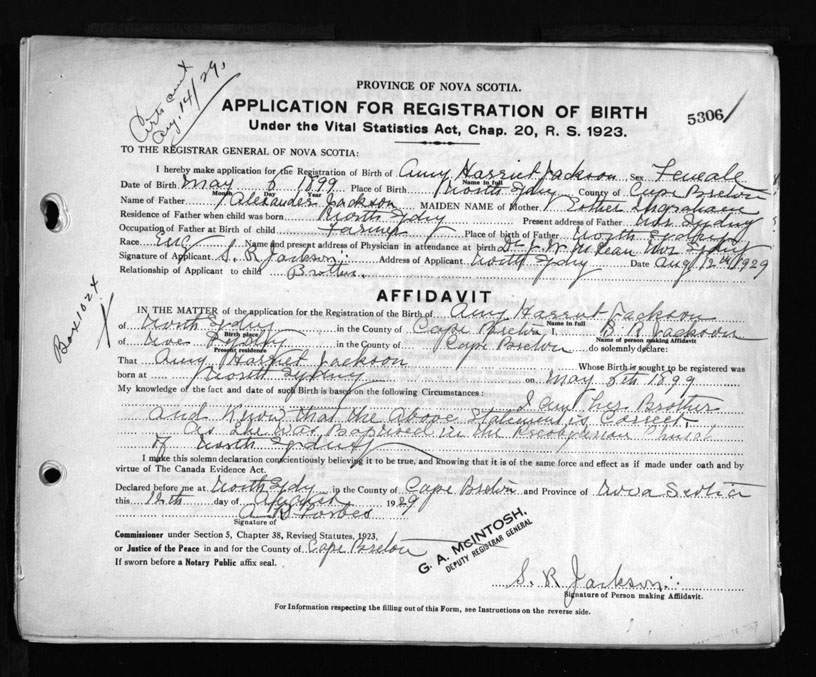 Certs out
Aug. 14/29,
PROVINCE OF NOVA SCOTIA.
APPLICATION FOR REGISTRATION OF BIRTH
5306
Under the Vital Statistics Act, Chap. 20, R. S. 1923.
TO THE REGISTRAR GENERAL OF NOVA SCOTIA:
I hereby make application for the Registration of Birth of Amy Harriet Jackson Sex Female
Name in full
Date of Birth May 8 1899 Place of Birth North Sydny County of Cape Breton
Month Day Year
Name of Father Alexander Jackson MAIDEN NAME of Mother Esther Ingraham
Residence of Father when child was born North Sydny Present address of Father Nor Sydny
Occupation of Father at Birth of child Farmer Place of birth of Father North Sydney
Race Eng Name and present address of Physician in attendance at birth Dr McLean Nor Sydny
Signature of Applicant S. R Jackson Address of Applicant North Sydny Date Aug 12th 1929
Relationship of Applicant to child Brother.
AFFIDAVIT
Box 102X
IN THE MATTER of the application for the Registration of the Birth of Amy Harriet Jackson
Name in full
of North Sydny in the County of Cape Breton I, R Jackson
Birth place
Name of person making Affidavit
of Nor Sydny in the County of Cape Breton do solemnly declare:
Present residence
That Amy Harriet Jackson Whose Birth is sought to be registered was
born at North Sydny on May 8th 1899
My knowledge of the fact and date of such Birth is based on the following Circumstances:
I am her Brother
and Know that the above Statement is Correct.
as she was Baptised in the Presbyterian Church
of North Sydny
I make this solemn declaration conscientiously believing it to be true, and knowing that it is of the same force and effect as if made under oath and by
virtue of The Canada Evidence Act.
Declared before me at North Sydny in the County of Cape Breton and Province of Nova Scotia
this 12th day of August 1929
Forbes
Signature of
Commissioner under Section 5, Chapter 38, Revised Statutes, 1923,
or Justice of the Peace in and for the County of Cape Breton
If sworn before a Notary Public affix seal.
G. A. McINTOSH,
DEPUTY REGISTRAR GENERAL
S. R Jackson
Signature of Person making Affidavit.
For Information respecting the filling out of this Form, see Instructions on the reverse side.